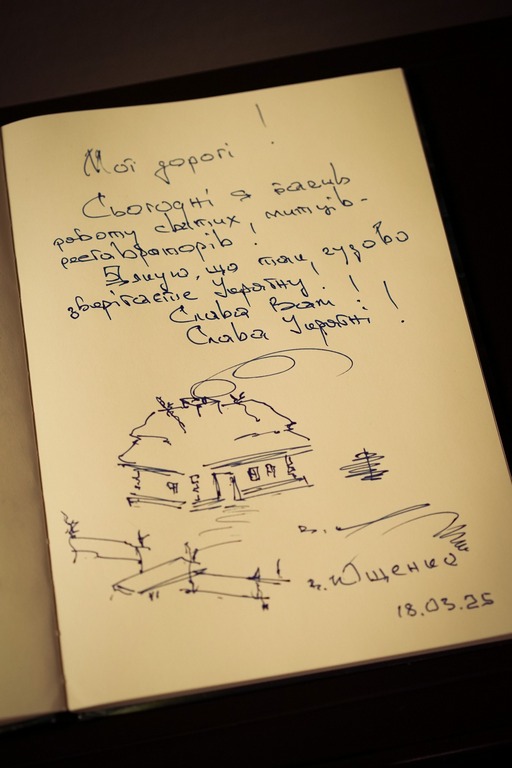 Мої дорогі !
Сьогодні я бачив
роботу святих, митців-
реставраторів !
Дякую, що так чудово
зберігаєте Україну !
Слава Вам !
Слава Україні !
В. Ющенко
18.03.25